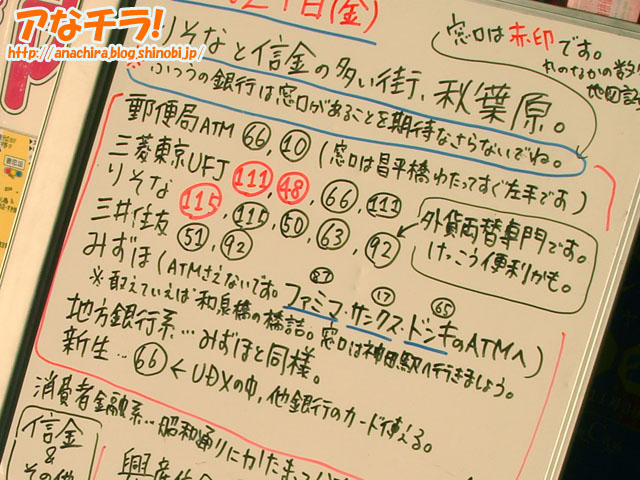 アなチラ!
http://anachira.blog.shinobi.jp/
日(金)
窓口は赤印です。
りそなと信金の多い街、秋葉原。
ふつうの銀行は窓口があることを期待なさらないでね。
郵便局ATM 66, 10 (窓口は昌平橋わたってすぐ左手です)
三菱東京UFJ 111, 48, 66, 111
りそな 115, 115, 50, 63, 92
外貨両替専門です。
けっこう便利かも。
三井住友 51, 92
みずほ(ATMさえないです。ファミマ・サンクス・ドンキのATMへ)
17
65
※敢えていえば和泉橋の橋詰。窓口は神田駅へ行きましょう。
地方銀行系…みずほと同様。
新生…66←UDXの中,他銀行のカード使える。
消費者金融系…昭和通りに
信金
&
その他